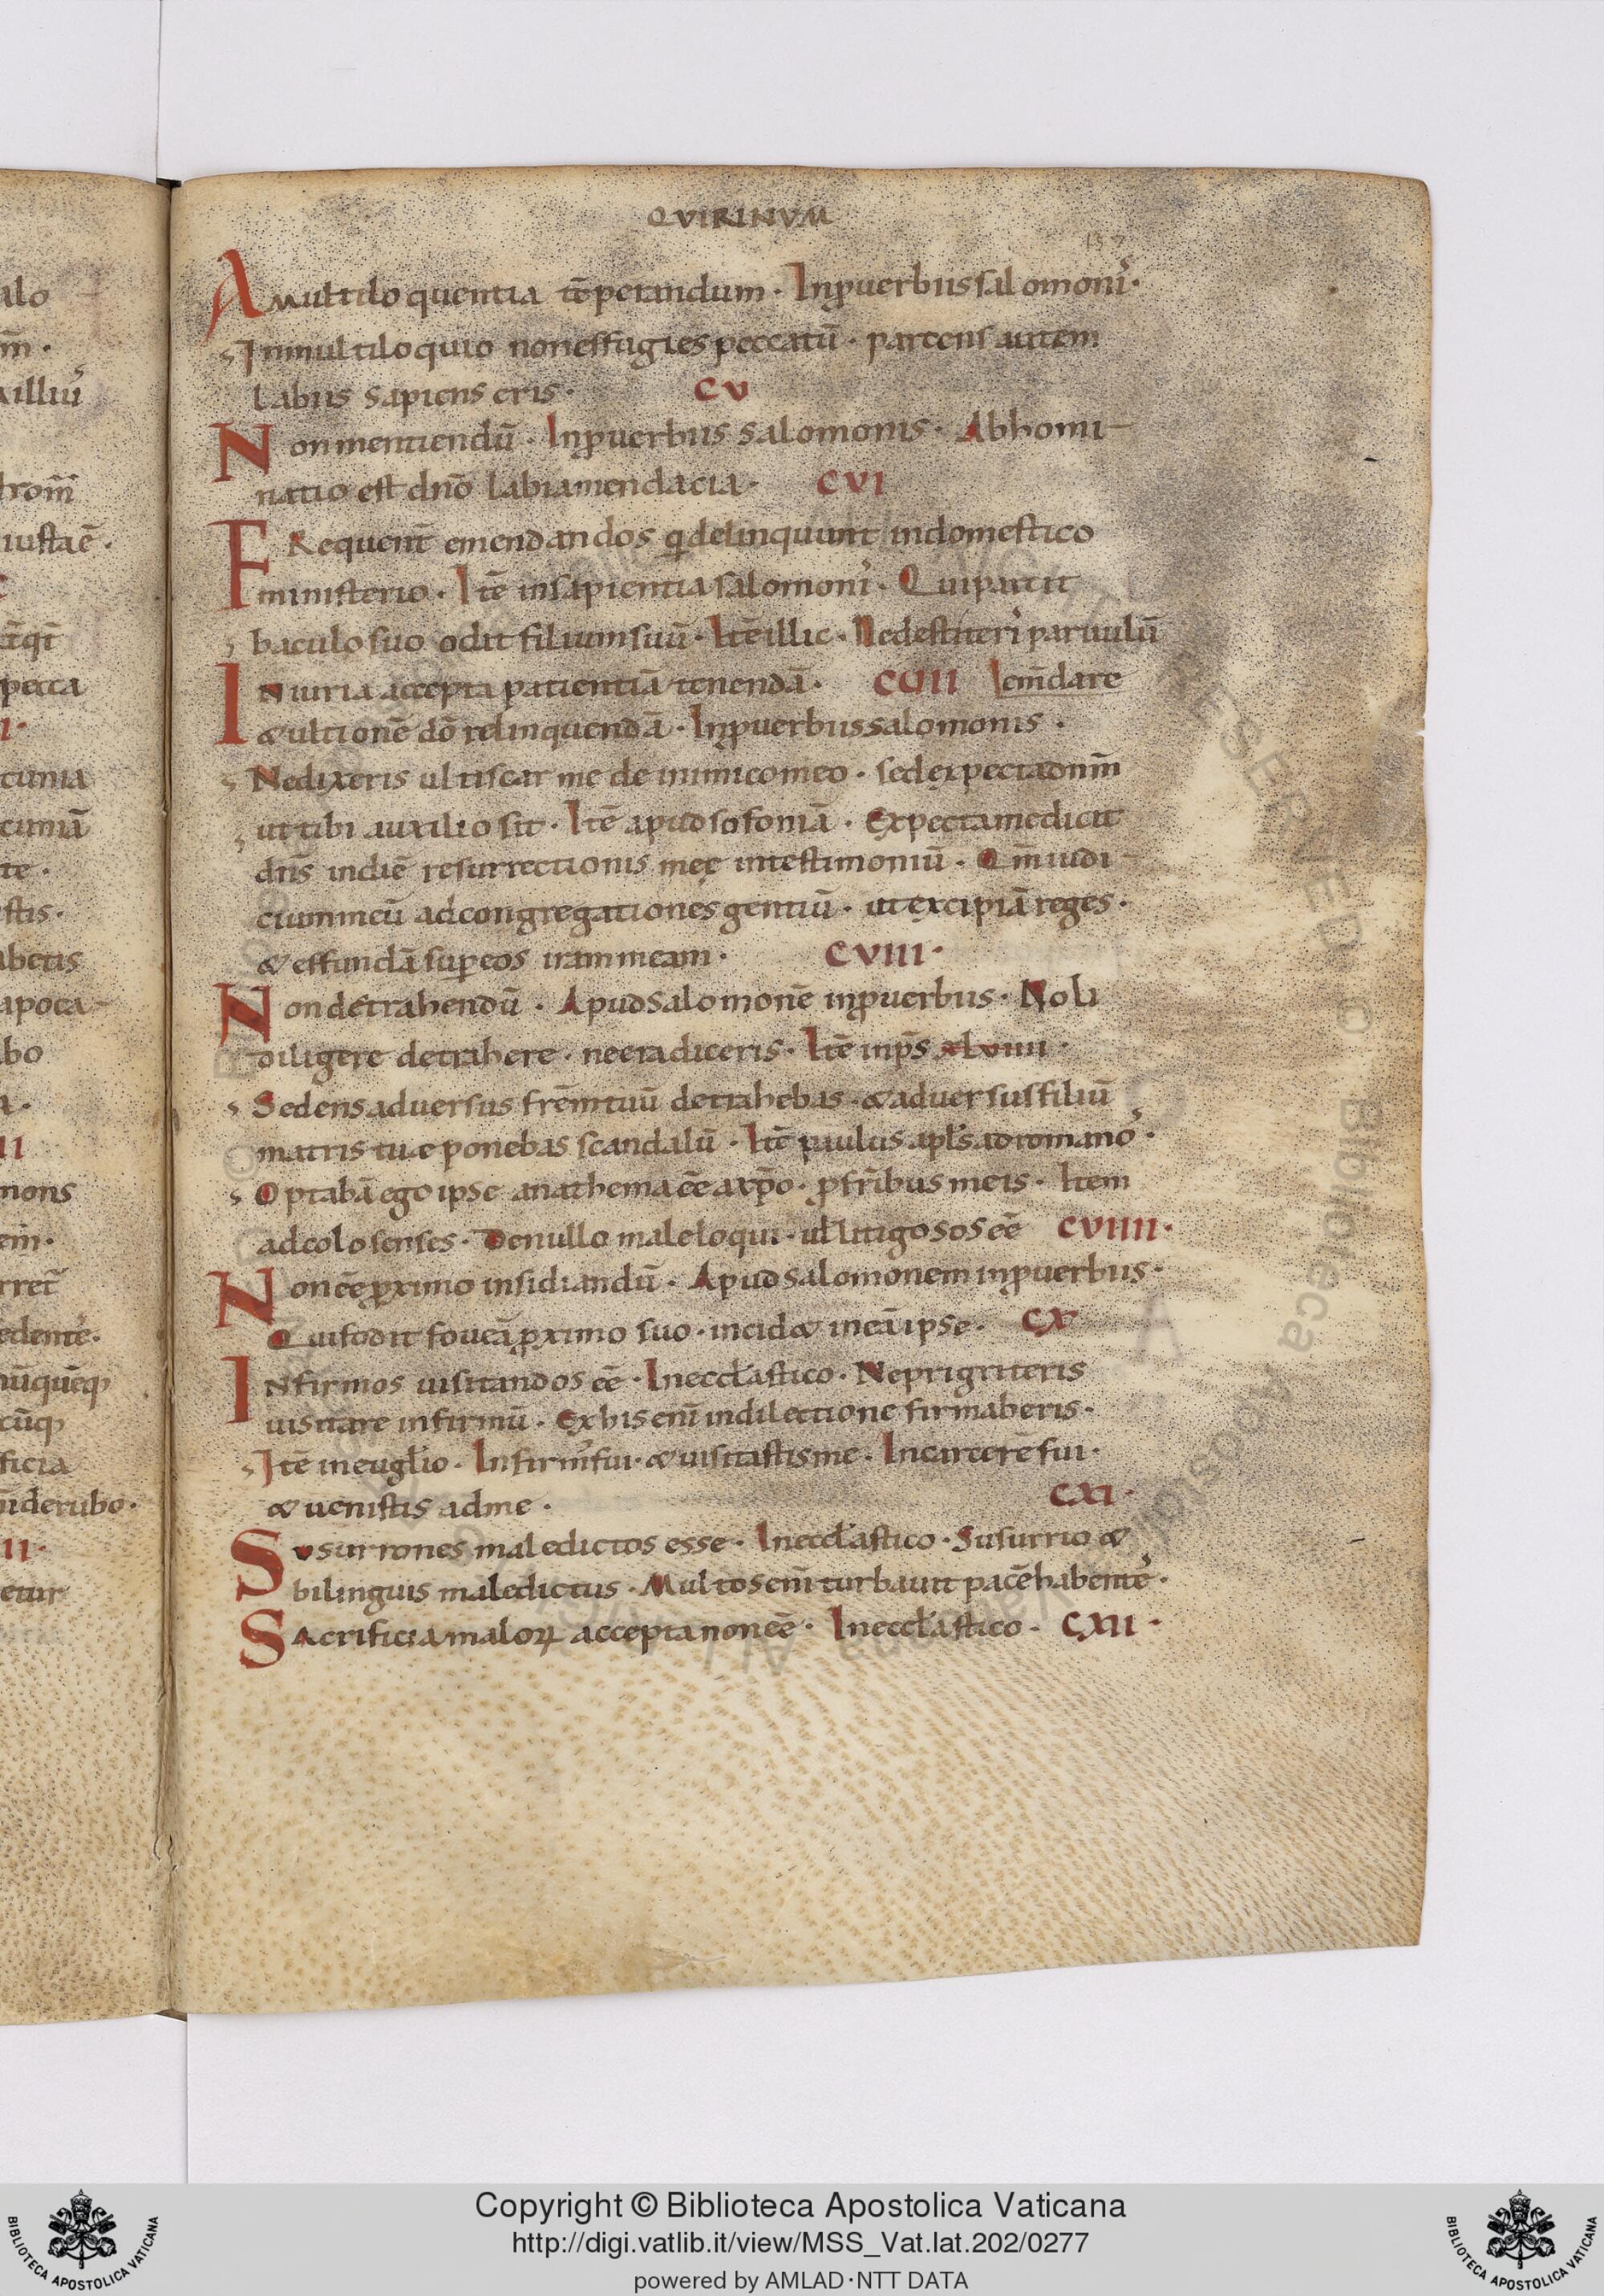 QVIRINVM
137
A multiloquentia tēperandum · Inꝓuerbiis salomoniˢ·
In multiloquio non effugies peccatū · parcens autem
labiis sapiens eris · CV
Non mentiendū · Inꝓuerbiis salomonis · Abhomi-
natio est dn̄o labia mendacia · CVI
FRequent̄ emendandos qi delinquunt in domestico
ministerio · Itē in sapientia salomoniˢ · Qui parcit
baculo suo odit filium suū · Itē illic · Ne destiteriˢ paruulū
INiuria accepta patientiā tenendā · CVII em̄dare
& ultionē dō relinquendā · Inꝓuerbiis salomonis ·
Ne dixeris ulciscar me de inimico meo · sed expecta dnm̄
ut tibi auxilio sit · Itē apud sofoniā · Expecta me dicit
dn̄s in diē resurrectionis meę in testimoniū · Qm̄ iudi-
cium meū ad congregationes gentiū · ut excipiā reges ·
& effundā suꝑ eos iram meam · CVIII ·
Non detrahendū · Apud salomonē inꝓuerbiis · Noli
diligere detrahere · ne eradiceris · Itē in ps̄ xlviiii ·
Sedens aduersus frēm tuū detrahebas · & aduersus filiū
matris tuae ponebas scandalū · Itē paulus apl̄s ad romanoˢ ·
Optabā ego ipse anathema eē a xp̄o · ꝓ fr̄ibus meis · Item
ad colosenses · De nullo male loqui · ul̄ litigosos eē CVIIII ·
Non eē ꝓximo insidiandū · Apud salomonem inꝓuerbiis ·
Qui fodit foueā ꝓximo suo · incid& in eā ipse · CX
INfirmos uisitandos eē · In eccl̄astico · Ne prigriteris
uisitare infirmū · Ex his enī in dilectione firmaberis ·
Itē in eugl̄io · Infirmˀ fui · & uisitastis me · In carcerē fui ·
& uenistis ad me · CXI ·
Susurrones maledictos esse · In eccl̄astico · Susurrio &
bilinguis maledictus · Multos enī turbauit pacē habenteˢ ·
SAcrificia maloꝝ accepta non eē · In eccl̄astico · CXII ·
Copyright © Biblioteca Apostolica Vaticana
http://digi.vatlib.it/view/MSS_Vat.lat.202/0277
powered by AMLAD·NTT DATA
BIBLIOTECA APOSTOLICA VATICANA
BIBLIOTECA APOSTOLICA VATICANA